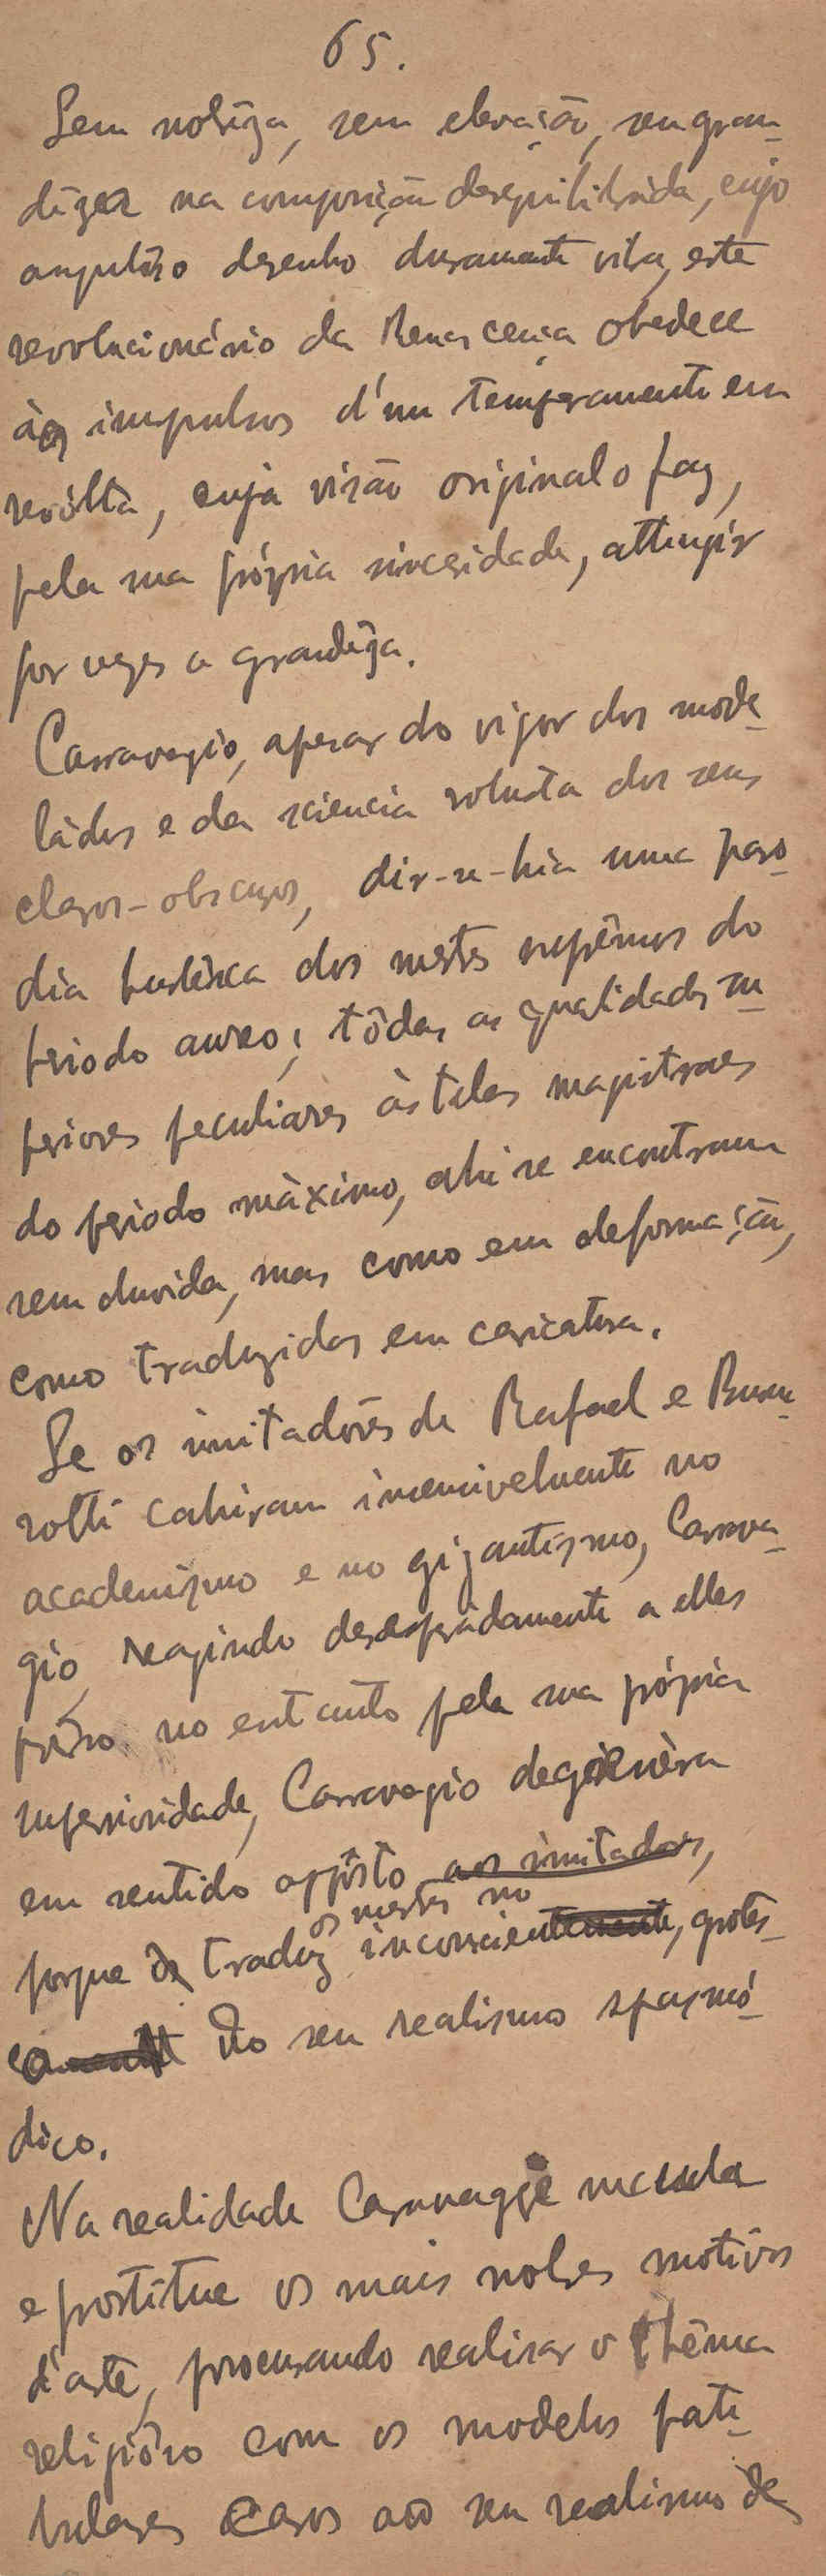 65.
Sem nobrêza, sem elevação, sem gran-
dêza na composição desequilibráda, cujo
angulôso desenho duramente vibra, este
revolucionário da Renascença obedece
aos impulsos d'um temperamento em
revólta, cuja visão original o faz,
pela sua própria sinceridade, attingir
por vezes a grandêza.
Carravagio, apesar do vigor dos mode-
ládos e da sciencia robusta dos seus
claros-obscuros, dir-se-hia uma paro-
dia burlêsca dos mestres suprêmos do
periodo aureo; tôdas as qualidades su-
periores peculiares às telas magistraes
do periodo máximo, ahi se encontram
sem duvida, mas como em deformação,
como traduzidas em caricatura.
Se os imitadôres de Rafael e Buona-
rotti cahiram insensivelmente no
academismo e no gigantismo, Carrava-
gio, reagindo desesperadamente a elles
prêso no entanto pela sua própria
inferioridade, Carravagio degenéra
em sentido oppôsto aos imitadores,
os mestres no
porque traduz inconscientemente, grotes-
camente do seu realismo spasmó-
dico.
Na realidade Caravaggio macula
e prostitue os mais nobres motivos
d'arte, procurando realisar o thêma
religiôso com os modelos pati-
bulares caros ao seu realismo de